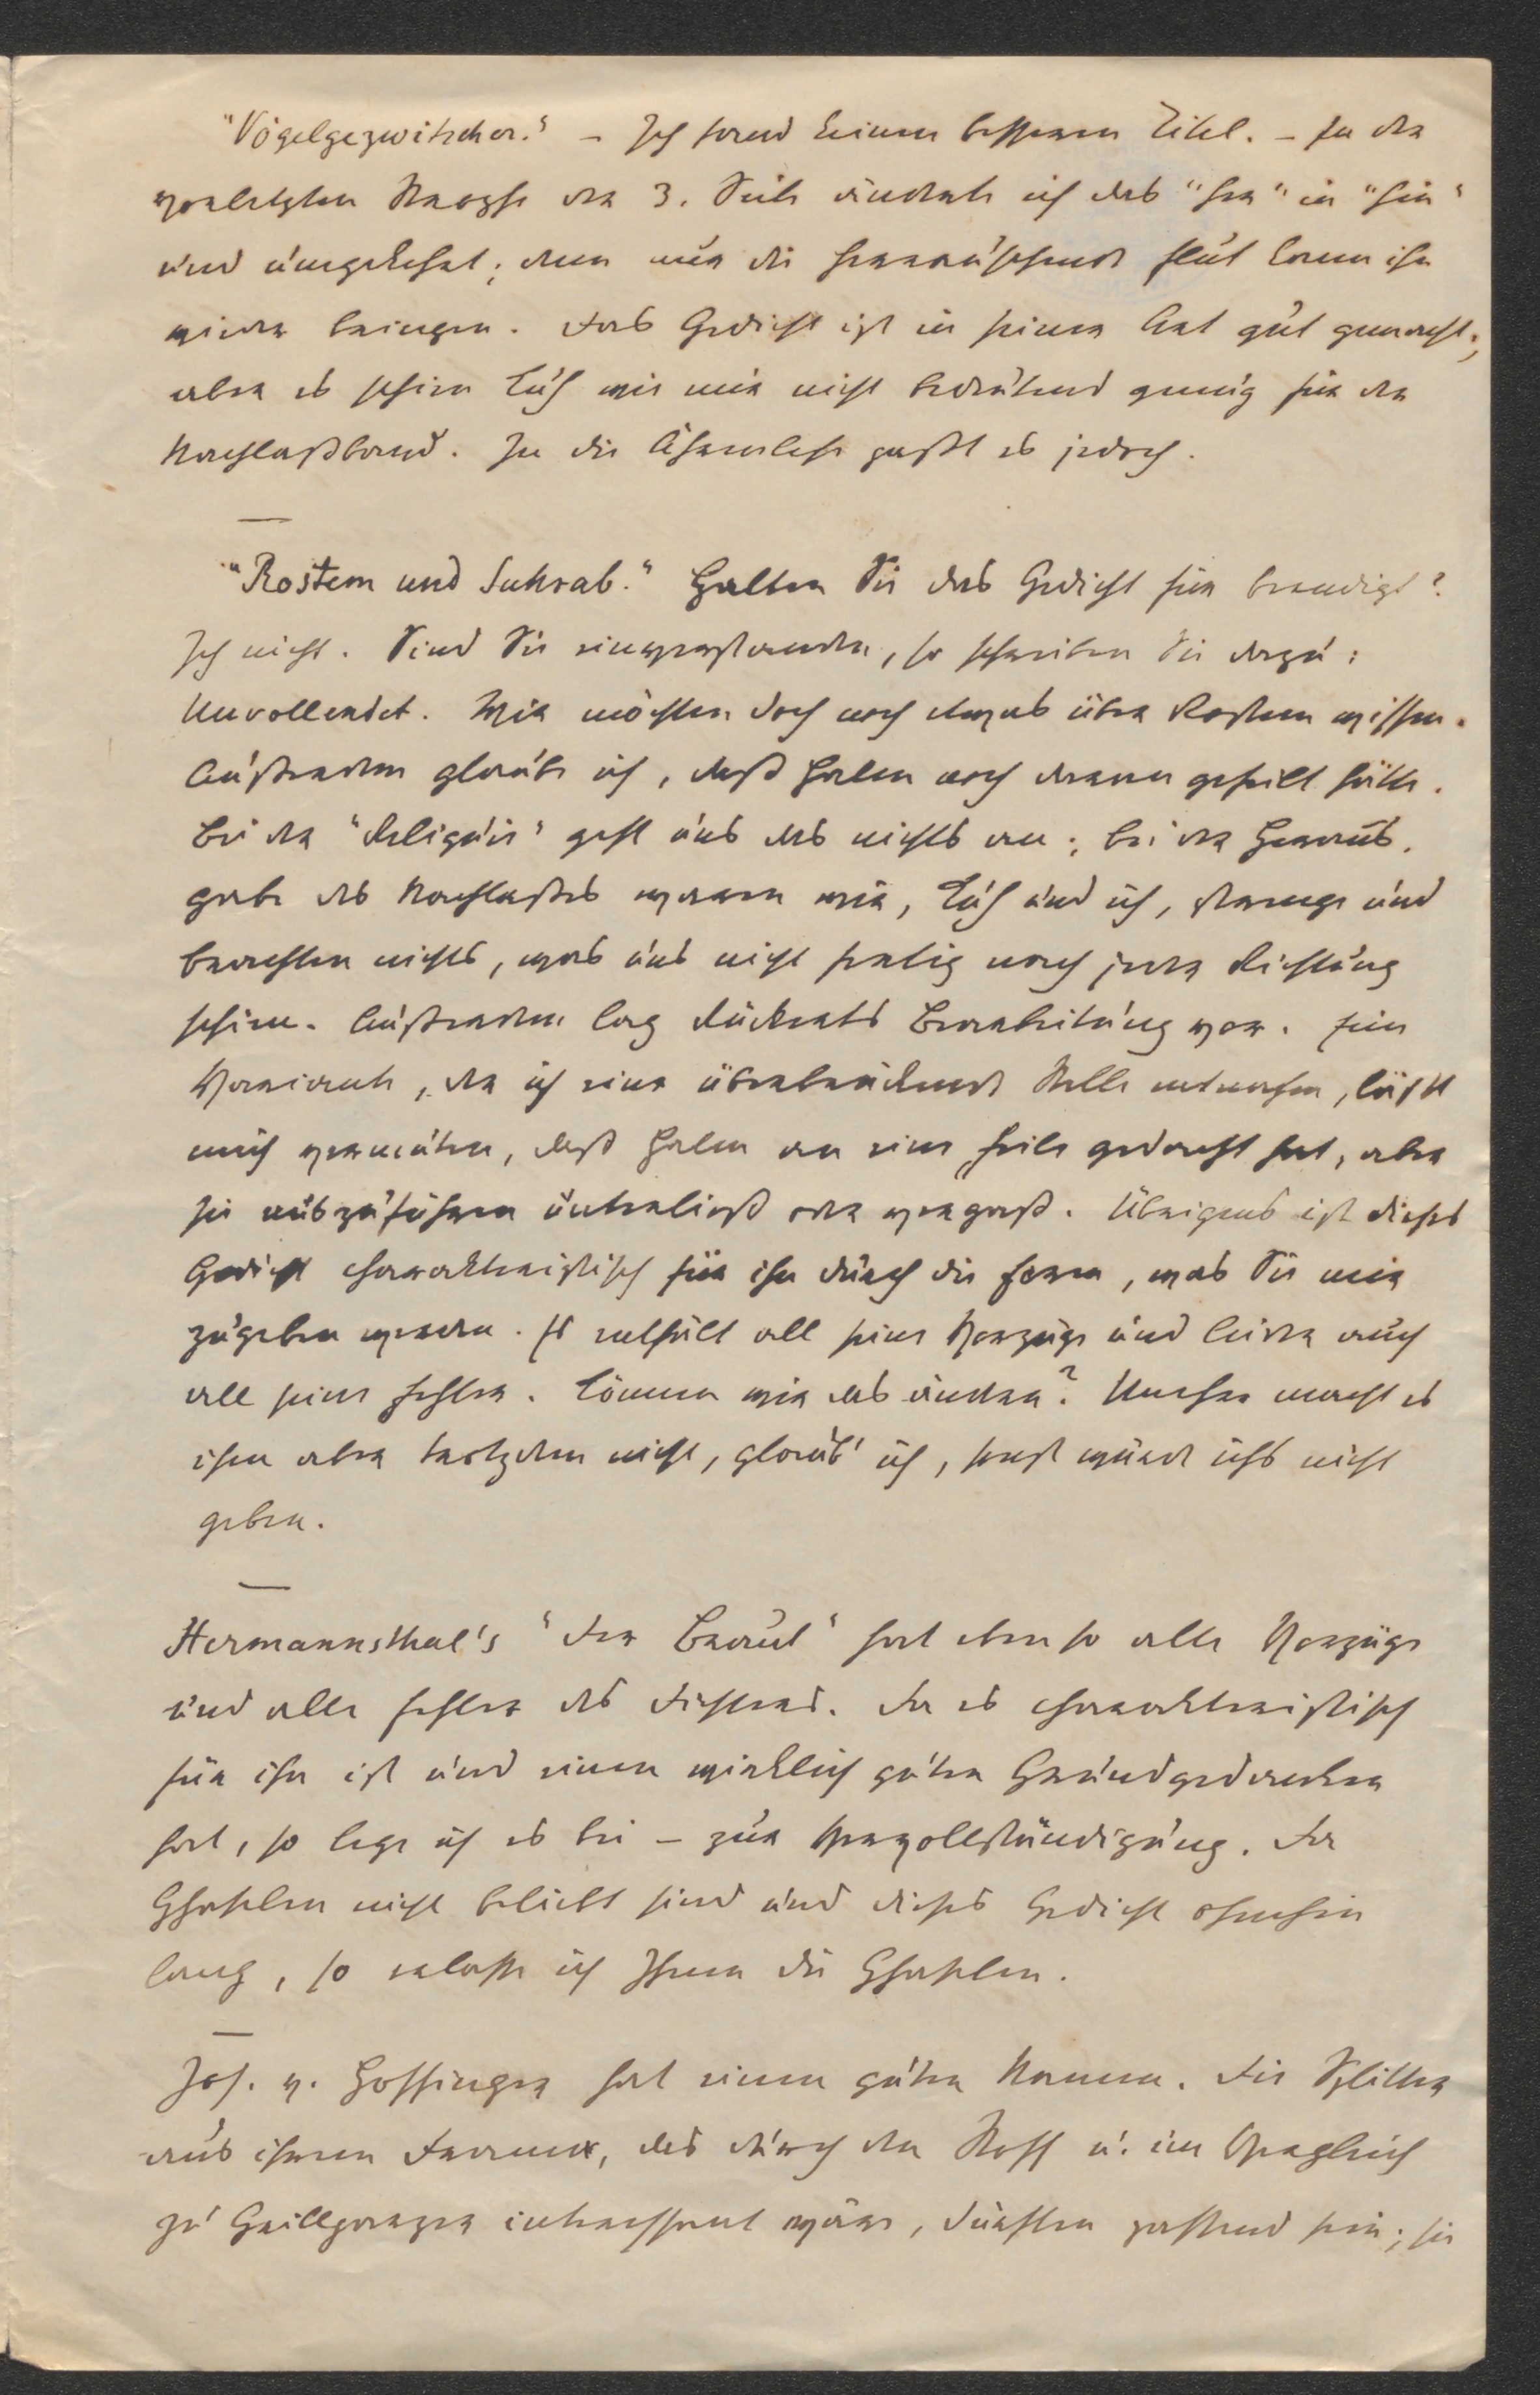 "Vögelgezwitscher." – Ich fand keinen besseren Titel. – In der
vorletzten Strophe der 3. Seite änderte ich das "her" in "hin"
und umgekehrt; denn nur die heranrauschende Flut kann ihn
wieder bringen. Das Gedicht ist in seiner Art gut gemacht;
aber es schien Kuh wie mir nicht bedeutend genug für den
Nachlaßband. In die Ährenlese paßt es jedoch.
—
"Rostem und Suhrab." Halten Sie das Gedicht für beendigt?
Ich nicht. Sind Sie einverstanden, so schreiben Sie dazu:
Unvollendet. Wir möchten doch noch etwas über Rostem wissen.
Außerdem glaube ich, daß Halm noch daran gefeilt hätte.
Bei der "Reliquie" geht uns das nichts an; bei der Heraus-
gabe des Nachlaßes waren wir, Kuh und ich, strenge und
brachten nichts, was uns nicht fertig nach jeder Richtung
schien. Außerdem lag Rückerts Bearbeitung vor. Eine
Variante, der ich eine überbrückende Stelle entnehme, läßt
mich vermuten, daß Halm an eine Feile gedacht hat, aber
sie auszuführen unterließ oder vergaß. Übrigens ist dieses
Gedicht charakteristisch für ihn durch die Form, was Sie mir
zugeben werden. Es enthält all seine Vorzüge und leider auch
all seine Fehler. Können wir das ändern? Unehre macht es
ihm aber trotzdem nicht, glaub' ich, sonst würde ichs nicht
geben.
—
Hermannsthal's "Der Braut" hat ebenso alle Vorzüge
und alle Fehler des Dichters. Da es charakteristisch
für ihn ist und einen wirklich guten Grundgedanken
hat, so lege ich es bei – zur Vervollständigung. Da
Ghaselen nicht beliebt sind und dieses Gedicht ohnehin
lang, so erlasse ich Ihnen die Ghaselen.
—
Jos. v. Hoffinger hat einen guten Namen. Die Splitter
aus ihrem Drama, das durch den Stoff u. im Vergleich
zu Grillparzer interessant wäre, dürften passend sein; sie